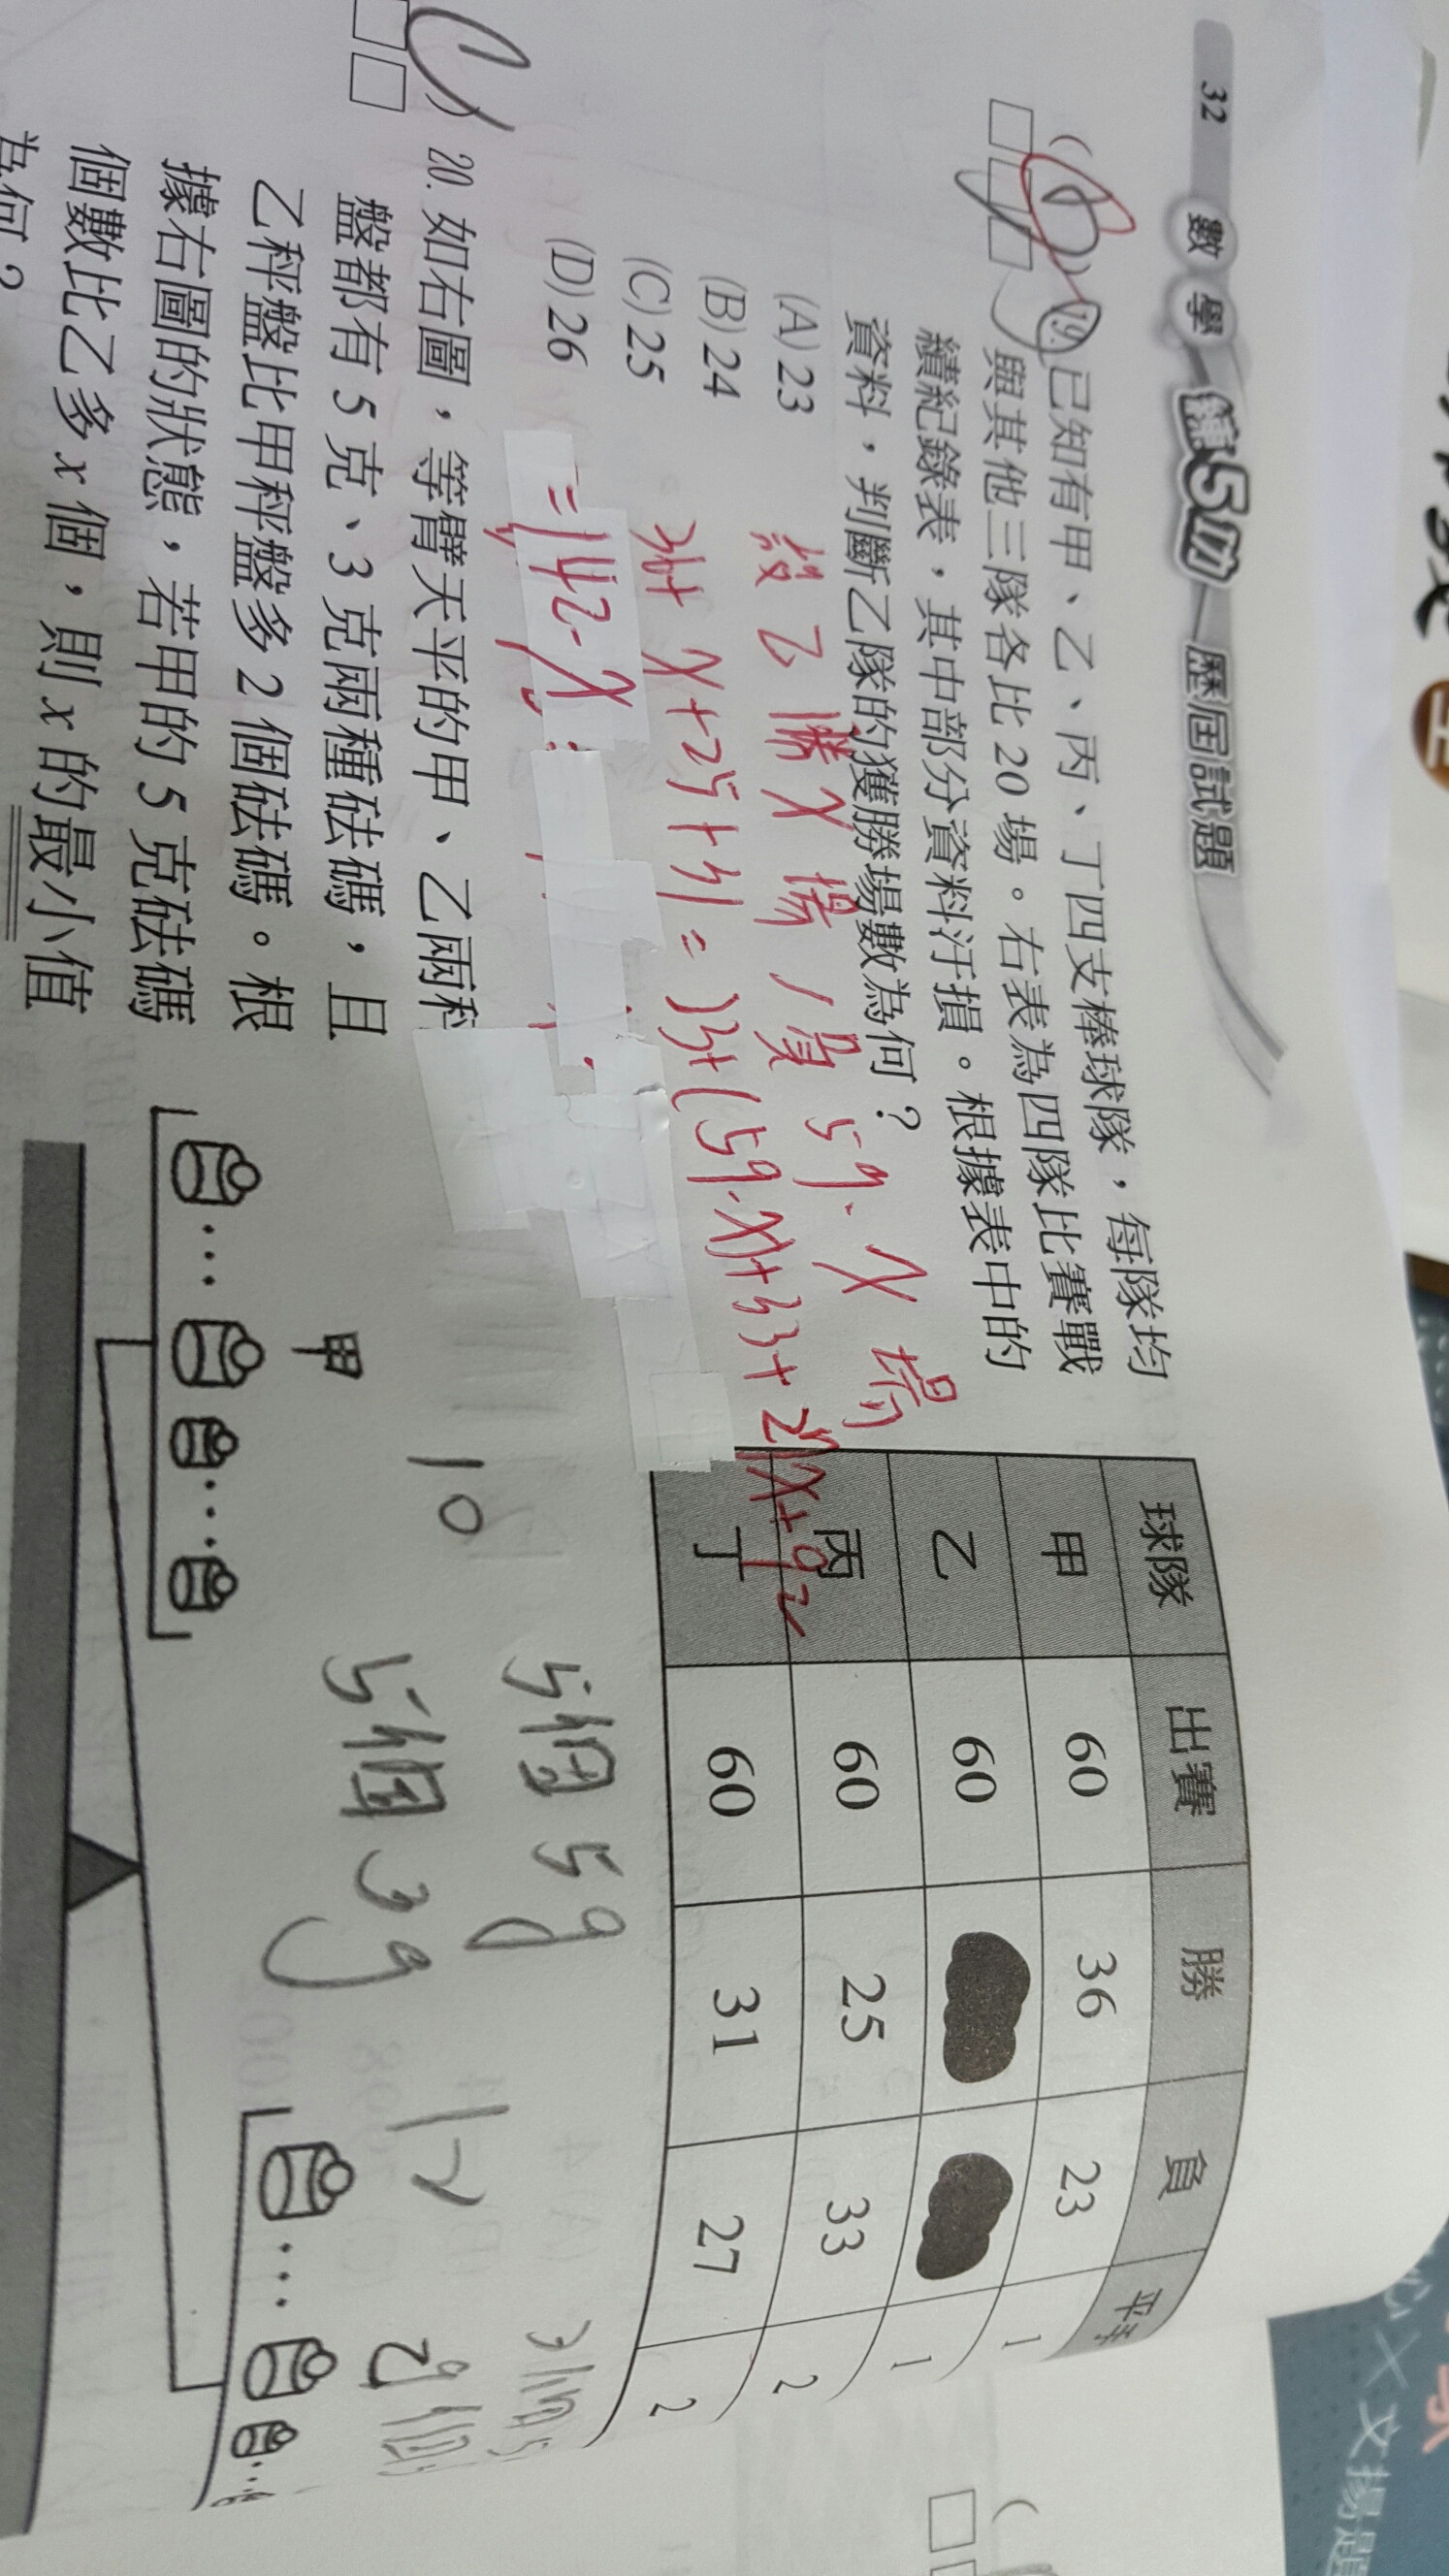 32 數學 歷屆試題
19. 已知有甲、乙、丙、丁四支棒球隊，每隊均
與其他三隊各比 20 場。右表為四隊比賽戰
績紀錄表，其中部分資料汙損。根據表中的
資料，判斷乙隊的獲勝場數為何？
(A) 23
(B) 24
(C) 25
(D) 26
設乙勝 x 場，負 59-x 場
36+x+25+31=23+(59-x)+33+27
x+92
=142-x
球隊 出賽 勝 負 平手
甲 60 36 23 1
乙 60 1
丙 60 25 33 2
丁 60 31 27 2
20. 如右圖，等臂天平的甲、乙兩秤
盤都有 5 克、3 克兩種砝碼，且
乙秤盤比甲秤盤多 2 個砝碼。根
據右圖的狀態，若甲的 5 克砝碼
個數比乙多 x 個，則 x 的最小值
為何？
甲
10
5個5g
5個3g
12